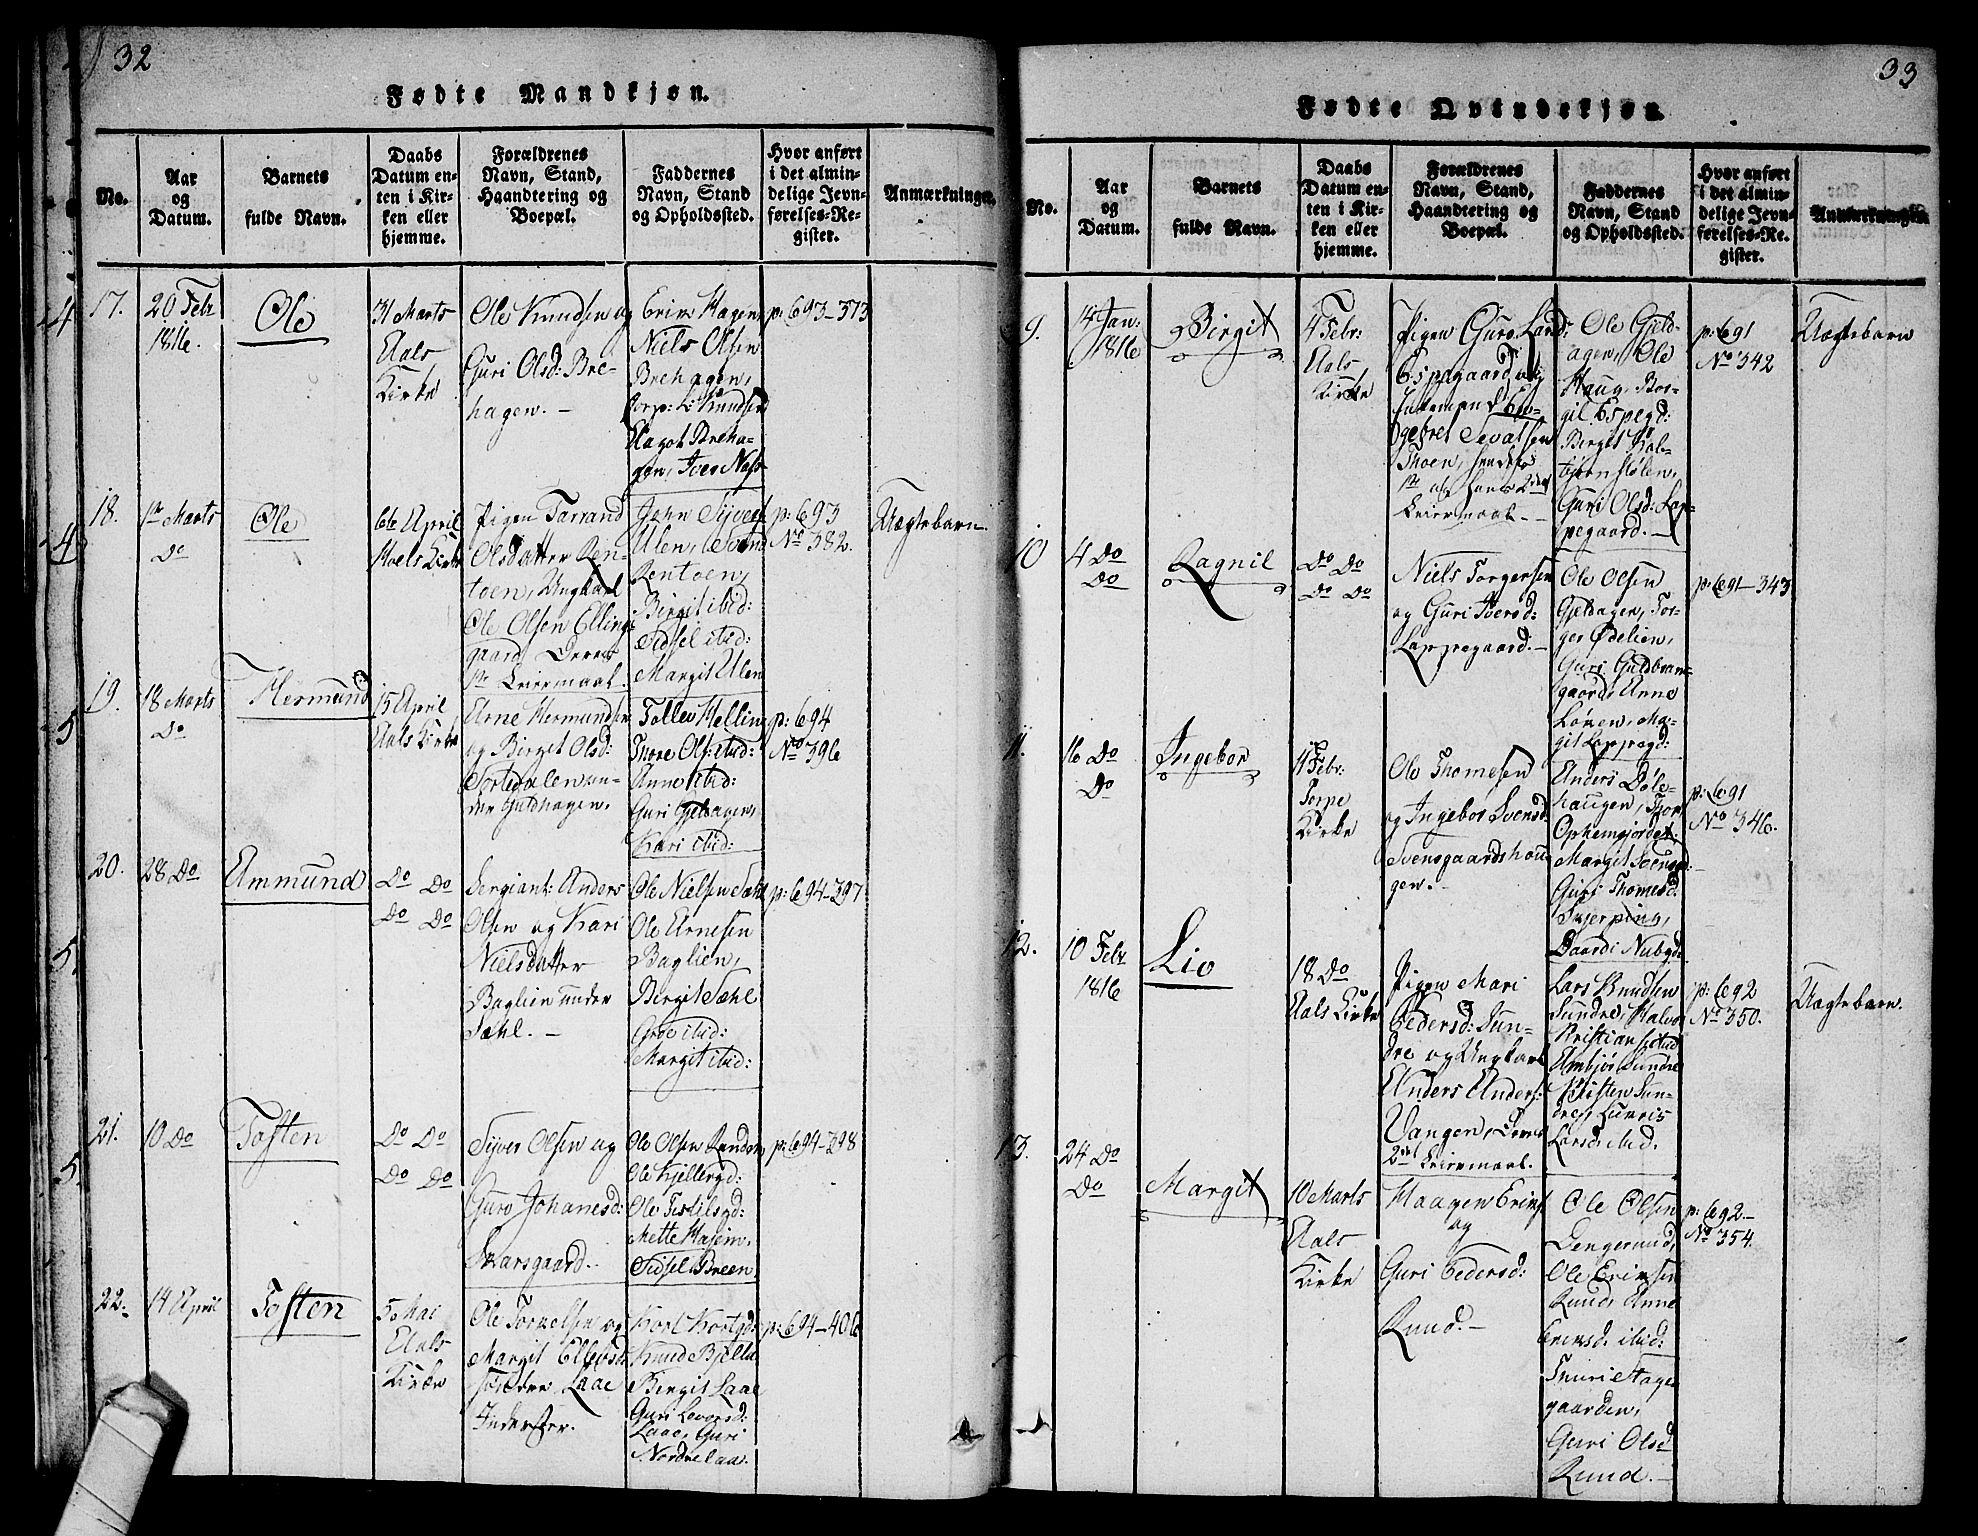 32
Fødte Mandkjøn.
No.
Aar
og
Datum.
Barnets
fulde Navn.
Daabs
Datum en-
ten i Kir-
ken eller
hjemme.
Forældrenes
Navn, Stand,
Haandtering og
Boepæl.
Faddernes
Navn, Stand
og Opholdssted.
Hvor anført
i det almin-
delige Jevn-
førelses-Re-
gister.
Anmærkninger.
17.
20 Febr
1816.
Ole
31 Marts
Aals
Kirke
Ole Knudsen og
Guri Olsd: Bre-
hagen. -
Erik Hagen,
Niels Olsen
Brehagen,
Corp: K: Knudsen
Aagot Breha-
gen, Iver Næss
p: 693-373
18.
1te Marts
Do
Ole
6te April
Hoels Kirke
Pigen Tarrand
Olsdatter Ren-
toen, Ungkarl
Ole Olsen Ellings
gaard, Deres
1te Leiermaal.
John Syvers
Ulen, Svend
Rentoen,
Birgit ibid:
Sidsel ibid:
Margit Ulen
p: 693
No 382.
Uægtebarn.
19.
18 Marts
Do
Hermund
15 April
Aals Kirke
Arne Hermundsen
og Birget Olsd:
Tortedalen un-
der Guldhagen.
Tollev Helling
Thore Ols: ibid:
Anne ibid:
Guri Gjeldhagen,
Kari ibid:
p: 694
No 396
20.
28 Do
Ammund
Do Do
Do Do
Sergiant: Anders
Olsen og Kari
Nielsdatter
Baglien under
Sæhl. -
Ole Nielsen Sæhl
Ole Arnesen
Baglien,
Birgit Sæhl
Groe ibid:
Margit ibid:
p: 694-397
21.
10 Do
Tosten
Do Do
Do Do
Syver Olsen og
Guro Johanesd:
Skarsgaard. -
Ole Olsen Sundre
Ole Kjellergd:
Ole Tistilsgd:
Mette Hasem.
Sidsel Breen
p: 694-398
22.
14 April
Tosten
5 Mai
Aals
Kirke
Ole Torkelsen og
Margit Ellevsd:
søndre Laae
Inderster.
Karl Kortgd:
Knud Bjella
Birgit Laae
Guri Levorsd:
Laae, Guri
Nordre Laa.
p: 694-406
33
Fødte Qvindekjøn.
No.
Aar
og
Datum.
Barnets
fulde Navn.
Daabs
Datum en-
ten i Kir-
ken eller
hjemme.
Forældrenes
Navn, Stand,
Haandtering og
Boepæl.
Faddernes
Navn, Stand
og Opholdssted.
Hvor anført
i det almin-
delige Jevn-
førelses-Re-
gister.
Anmærkninger.
9.
14 Jan:
1816
Birgit
4 Febr:
Aals
Kirke
Pigen Guro Lars:
Espegaard og
Enkemand En-
gebret Sevatsen
Thoen, hendes
1te og hans 2det
Leiermaal. -
Ole Guld-
agen, Ole
Haug, Bor-
gil Espegd:
Birgit Kal-
bjørnstølen,
Guri Olsd: Lap-
pegaard. -
p: 691
No 342
Uægtebarn
10
4 Do
Do
Ragnil
Do Do
Do Do
Niels Torgersen
og Guri Iversd:
Lappegaard. -
Ole Olsen
Gjeldagen, Tor-
ger Ødelien,
Guri Guldbran-
gaard, Anne
Lønen, Ma-
git Lappegd:
p: 691-343
11.
16 Do
Do
Ingebor
4 Febr:
Torpe
Kirke
Ole Thomesen
og Ingebor Svensd:
Svensgaardshau
gen. -
Anders Døle-
haugen, Thor
Opheimgjordet:
Margit Svensgd:
Guri Thomesd:
Skjerping,
Baardi Nubgd:
p: 691
No 346.
12.
10 Febr
1816
Liv
18 Do
Aals Kirke
Pigen Mari
Pedersd: Sun-
dre og Ungkarl
Anders Anders:
Vangen, Deres
2det Leiermaal.
Lars Knudsen
Sundre, Halvor
Kristians: ibid
Ambjør Sundre
Kristen Sun-
dre, Guri
Larsd. ibid.
p: 692
No 350.
Uægtebarn.
13.
24 Do
Do
Margit
10 Marts
Aals
Kirke
Haagen Eriks:
og
Guri Pedersd:
Ruud. -
Ole Olsen
Lengerud,
Ole Eriksen
Ruud, Anne
Eriksd. ibid:
Thuri Hage
gaarden,
Guri Olsd
Ruud. -
p: 692-
No 354.